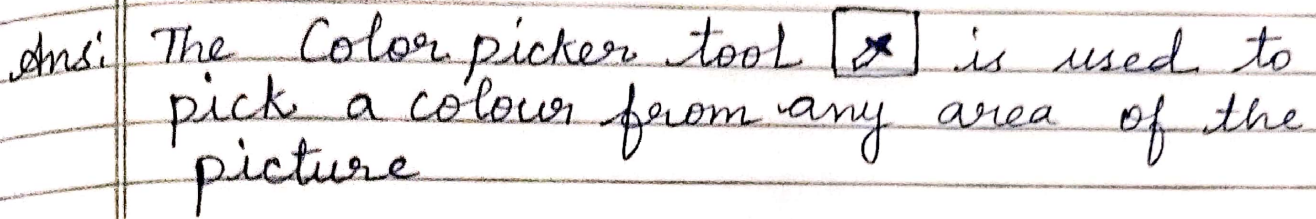 Ans: The Color picker tool is used to
pick a colour from any area of the
picture